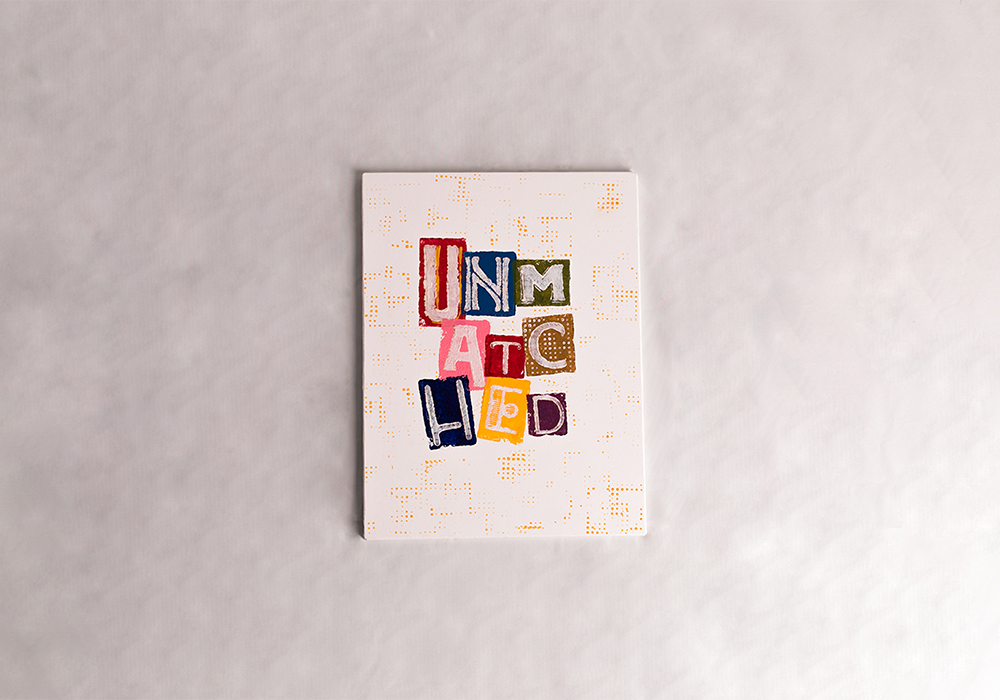 UNM
ATC
HED